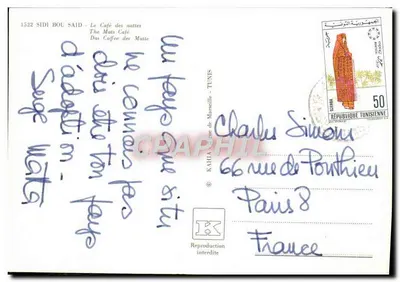 1532 SIDI BOU SAID - Le Café des nattes
The Mats Café
Das Caffee des Matts
Un pays que si tu
ne connais pas
dois être ton pays
d'adoption -
Serge Matta
© KAHIA
de Marseille - TUNIS
Reproduction
interdite
50
REPUBLIQUE TUNISIENNE
Charles Simoni
66 rue de Ponthieu
Paris 8
France